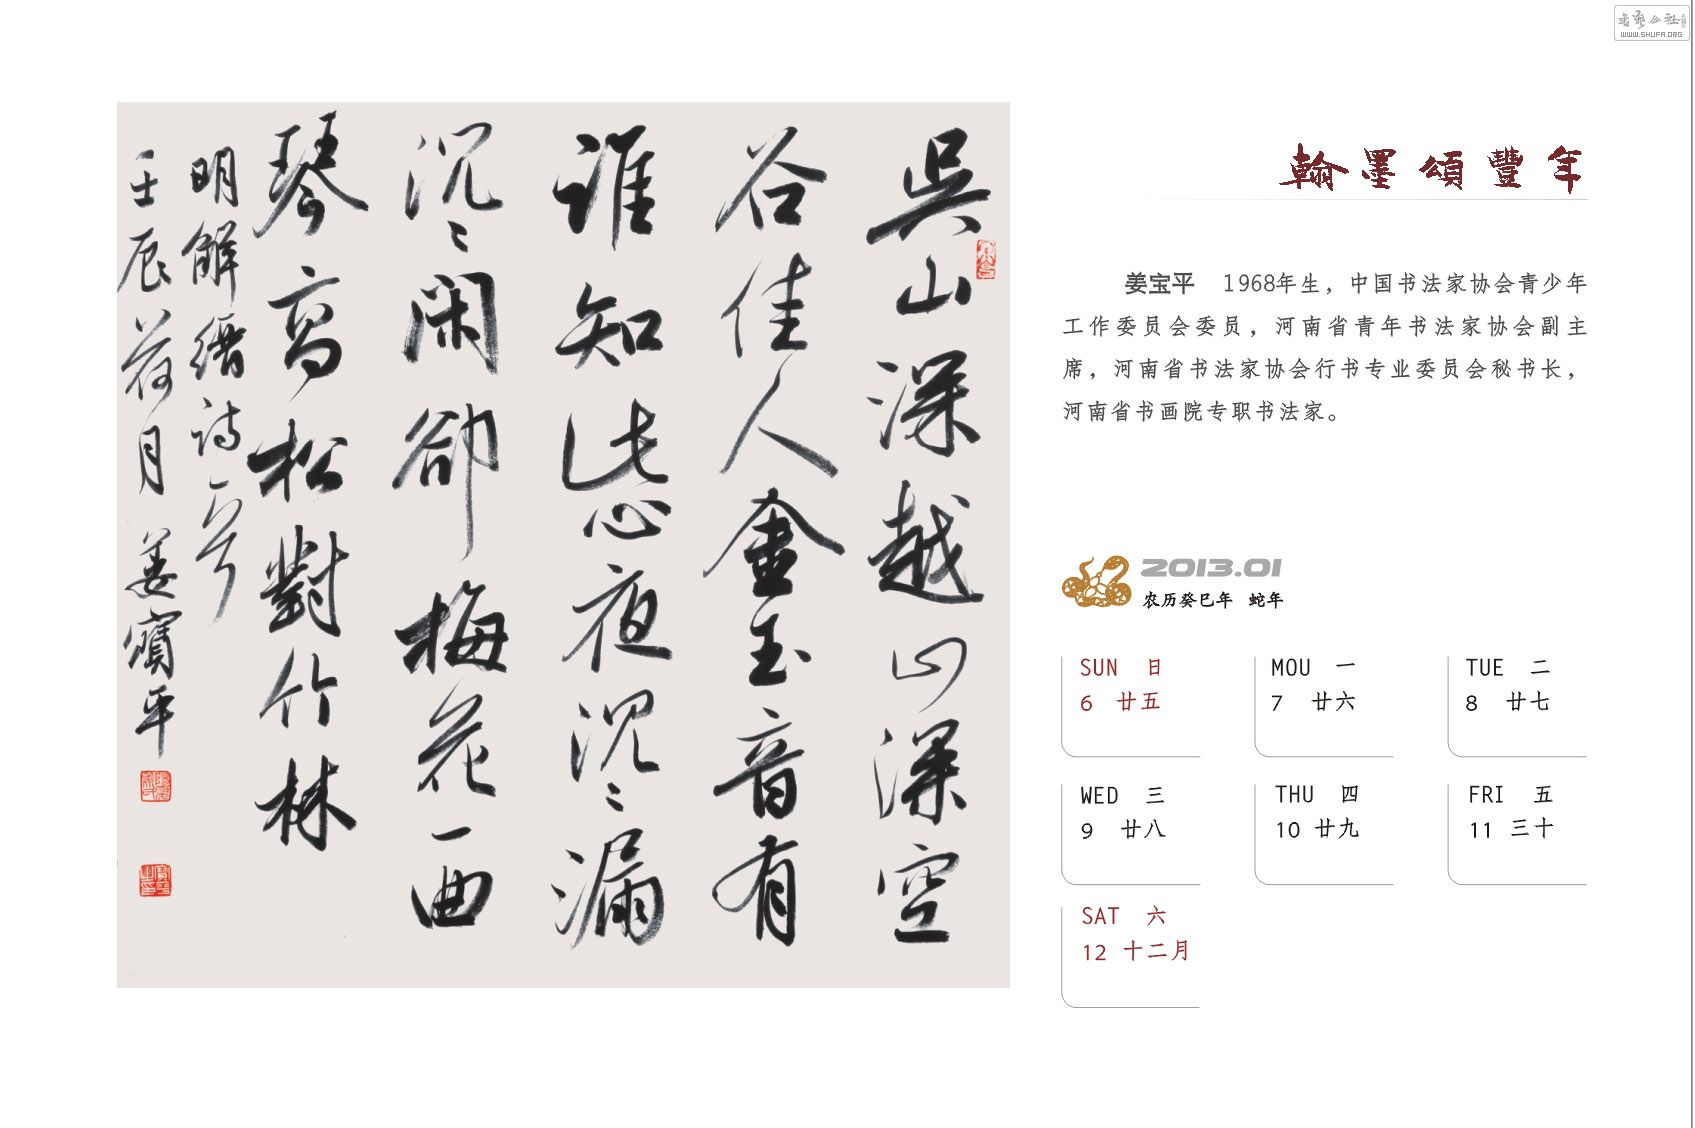 書藝公社
WWW.SHUFA.ORG
吳山深越山深空
谷佳人金玉音有
誰知此心夜沉〻漏
沉〻閑卻梅花一曲
琴高松對竹林
明解縉詩一首
壬辰荷月姜寶平
翰墨頌豐年
姜宝平 1968年生，中国书法家协会青少年
工作委员会委员，河南省青年书法家协会副主
席，河南省书法家协会行书专业委员会秘书长，
河南省书画院专职书法家。
2013.01
农历癸巳年 蛇年
SUN 日
6 廿五
MOU 一
7 廿六
TUE 二
8 廿七
WED 三
9 廿八
THU 四
10 廿九
FRI 五
11 三十
SAT 六
12 十二月